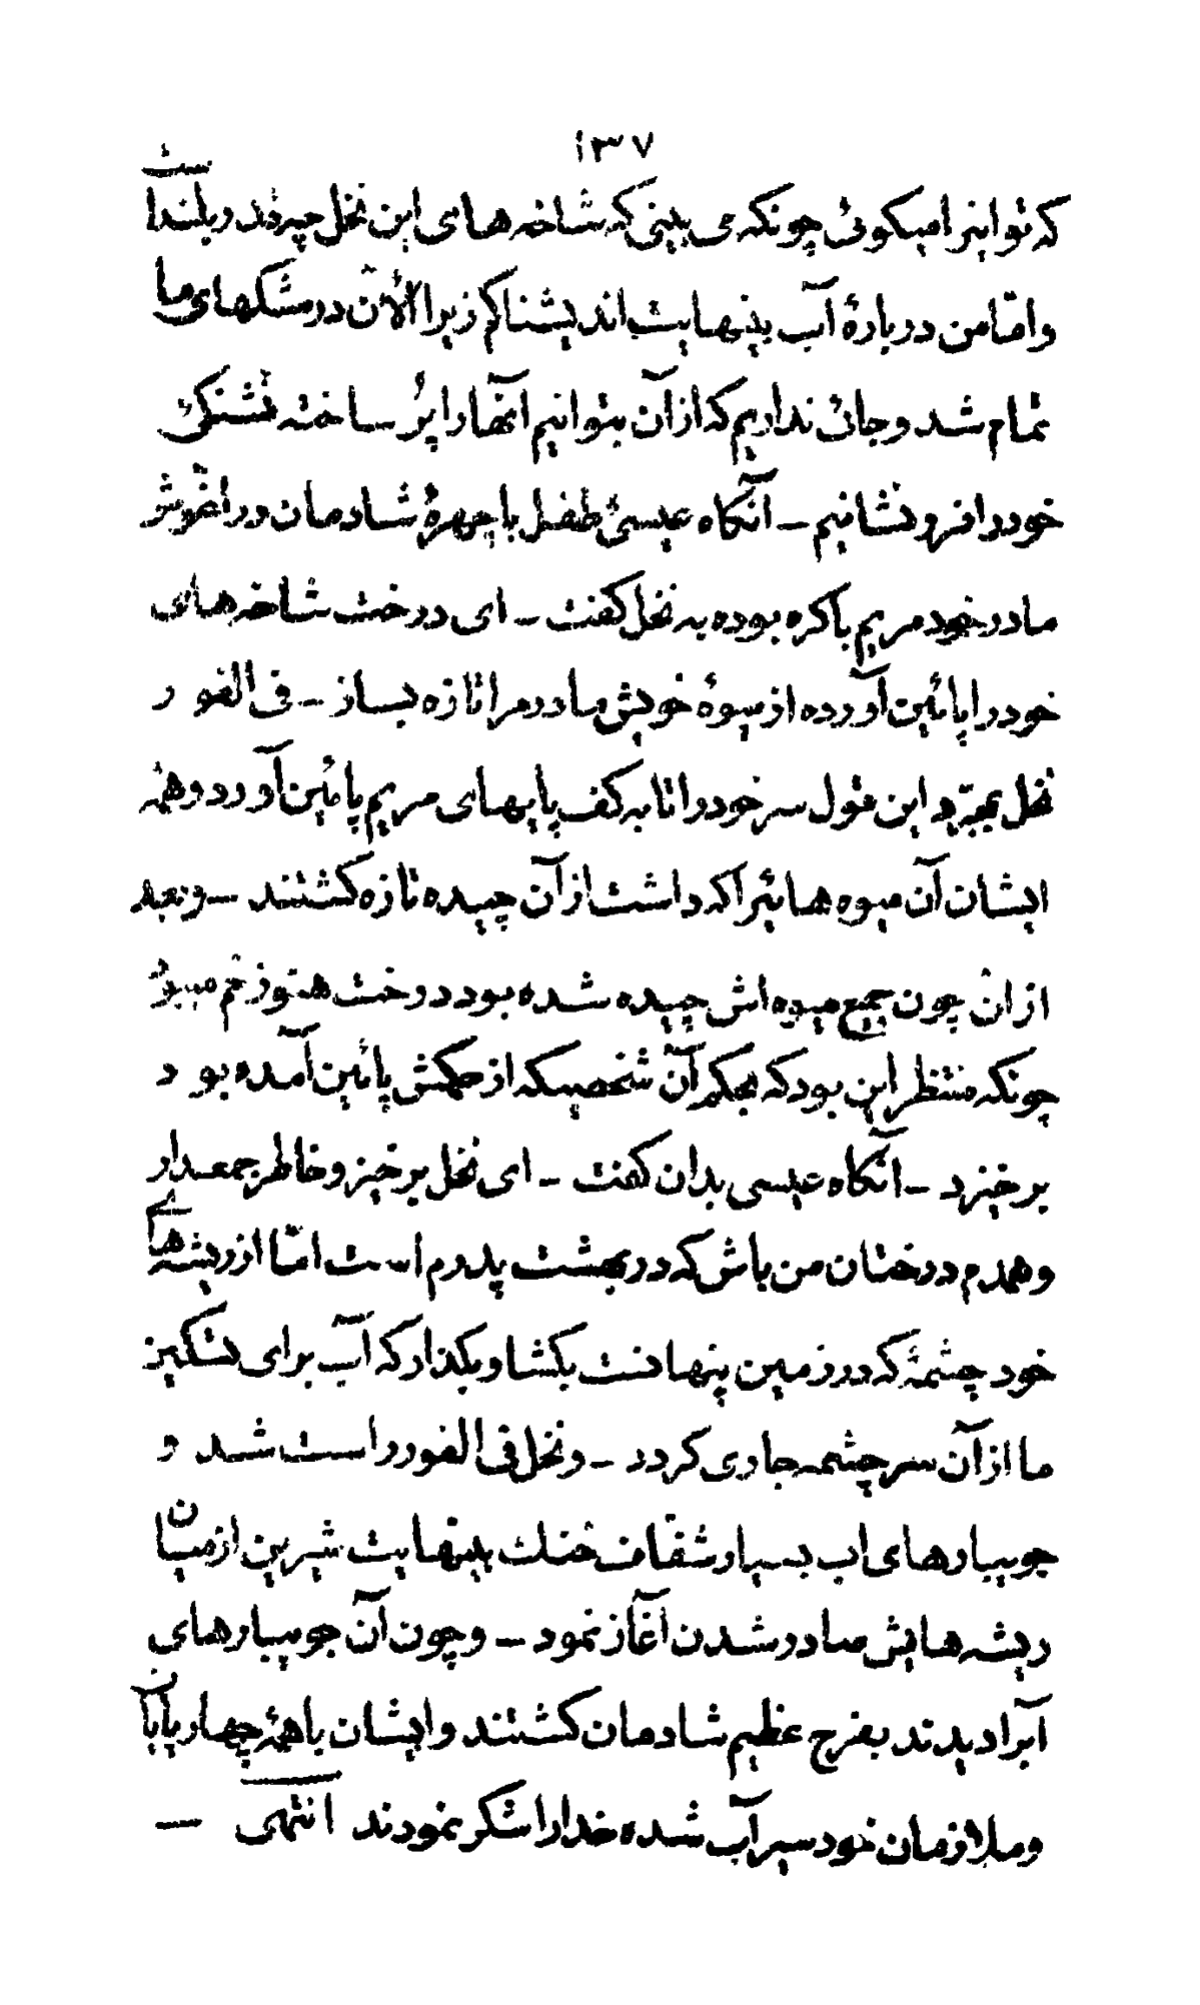 ۱۳۷
که تو اینرا میگوئی چونکه می بینی که شاخه های این نخل چه قدر بلند است
و امّا من دربارهٔ آب بینهایت اندیشناکم زیرا الأن در مشکهای ما
تمام شد و جائی نداریم که از آن بتوانیم آنها را پُر ساخته تشنگیٔ
خود را فرو نشانیم ــ آنگاه عیسیٔ طفل با چهرهٔ شادمان در آغوش
مادر خود مریم باکره بوده به نخل گفت ــ ای درخت شاخه های
خود را پائین آورده از میوهٔ خویش مادر مرا تازه بساز ــ فی الفور
نخل بمجرّد این قول سر خود را تا به کف پایهای مریم پائین آورد و همهٔ
ایشان آن میوه هائیرا که داشت از آن چیده تازه گشتند ــ و بعد
از ان چون جمیع میوه اش چیده شده بود درخت هنوز خم میبود
چونکه منتظر این بود که بحکم آن شخصیکه از حکمش پائین آمده بود
بر خیزد ــ آنگاه عیسی بدان گفت ــ ای نخل بر خیز و خاطر جمعدار
و همدم درختان من باش که در بهشت پدرم است امّا از ریشه های
خود چشمهٔ که در زمین پنهانست بگشا و بگذار که آب برای تسکین
ما از آن سر چشمه جاری گردد ــ و نخل فی الفور راست شد و
جویبارهای اب بسیار شفّاف خنك بینهایت شیرین از میان
ریشه هایش صادر شدن آغاز نمود ــ و چون آن جویبارهای
آبرا دیدند بفرح عظیم شادمان گشتند و ایشان با همهٔ چهارپایان
و ملازمان خود سیر آب شده خدا را شکر نمودند انتهی ــ